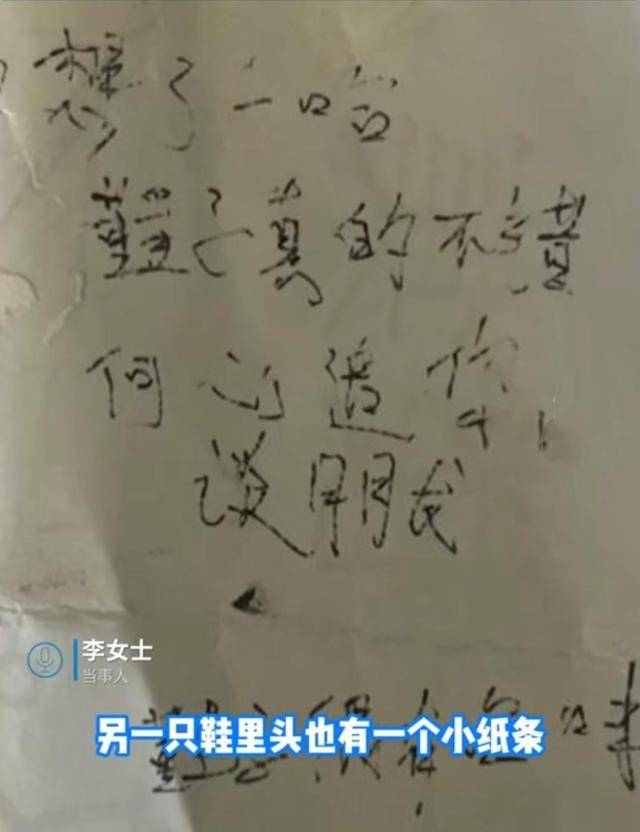 想了一哈
鞋子真的不错
何必追你，
谈朋友
李女士
当事人
另一只鞋里头也有一个小纸条